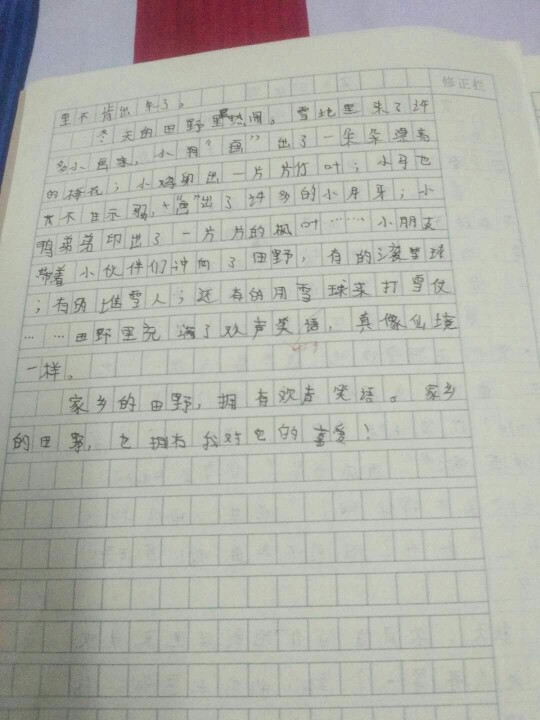 修正栏
里不肯出来了。
冬天的田野里最热闹。雪地里来了许
多小画家，小狗“画”出了一朵朵漂亮
的梅花；小鸡印出一片片竹叶；小马也
不甘示弱，“画”出了许多的小月牙；小
鸭弟弟印出了一片片的枫叶……小朋友
带着小伙伴们冲向了田野，有的滚雪球
；有的堆雪人；还有的用雪球来打雪仗
……田野里充满了欢声笑语，真像仙境
一样。
家乡的田野，拥有欢声笑语。家乡
的田野，也拥有我对它的喜爱！